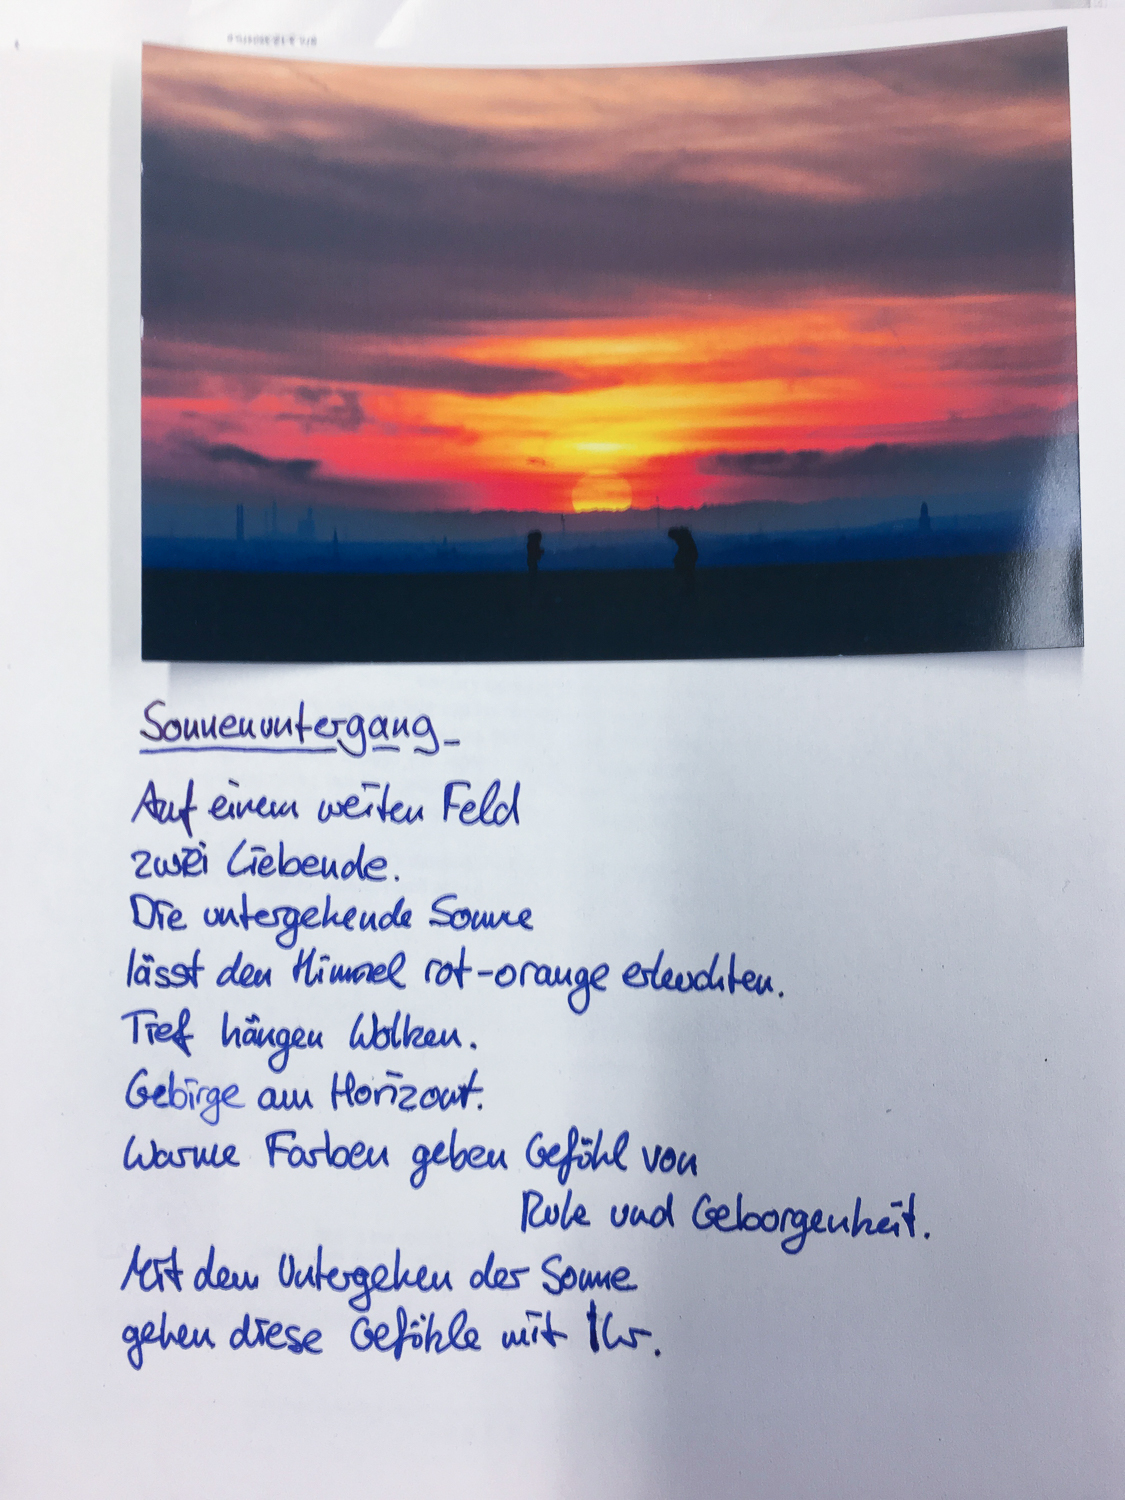 Sonnenuntergang_
Auf einem weiten Feld
zwei Liebende.
Die untergehende Sonne
lässt den Himmel rot-orange erleuchten.
Tief hängen Wolken.
Gebirge am Horizont.
Warme Farben geben Gefühl von
Ruhe und Geborgenheit.
Mit dem Untergehen der Sonne
gehen diese Gefühle mit Ihr.